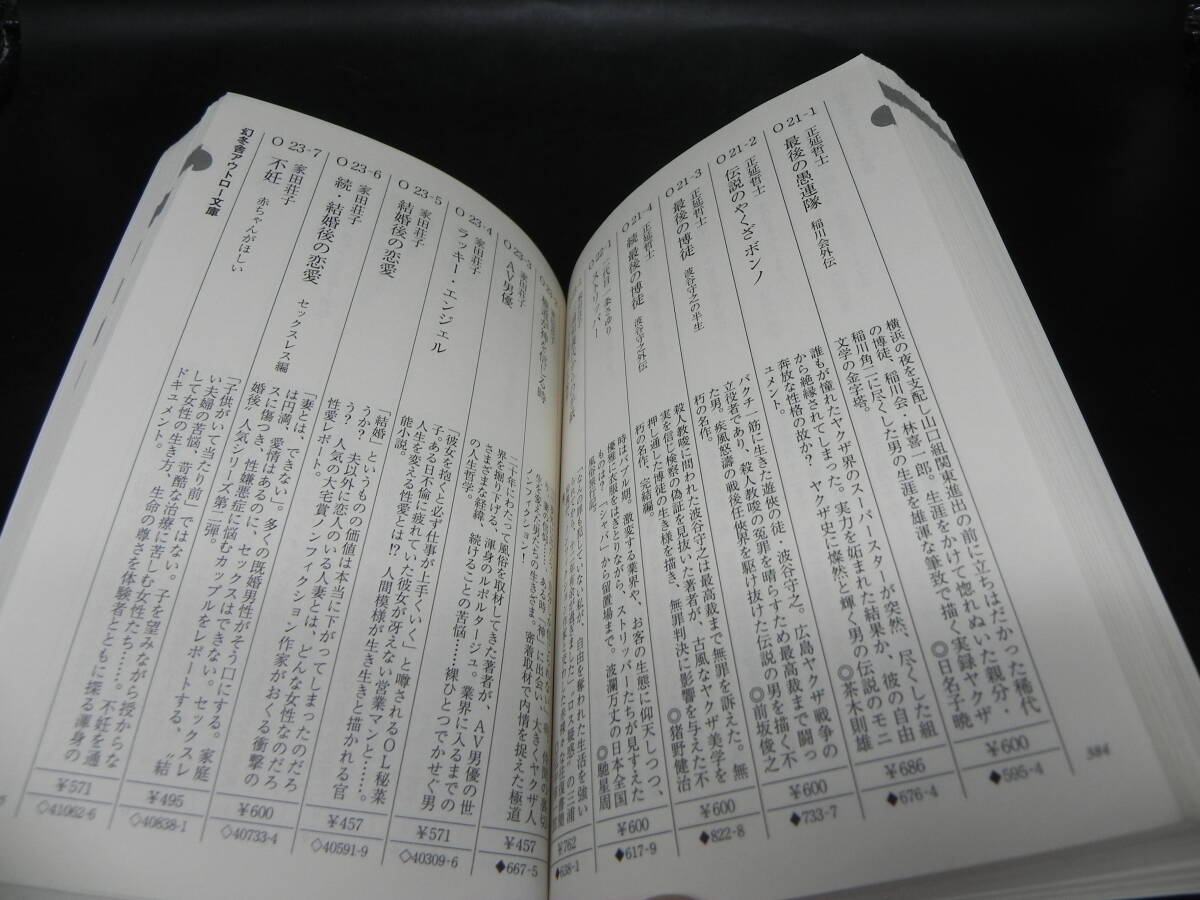 384
O 21-1
正延哲士
最後の愚連隊 稲川会外伝
横浜の夜を支配し山口組関東進出の前に立ちはだかった稀代
の博徒、稲川会・林喜一郎。生涯をかけて惚れぬいた親分、
稲川角二に尽くした男の生涯を雄渾な筆致で描く実録ヤクザ
文学の金字塔。 ◎日名子暁
¥600
◆595-4
O 21-2
正延哲士
伝説のやくざボンノ
誰もが憧れたヤクザ界のスーパースターが突然、尽くした組
から絶縁されてしまった。実力を妬まれた結果か、彼の自由
奔放な性格の故か？ ヤクザ史に燦然と輝く男の伝説のモニ
ュメント。 ◎茶木則雄
¥686
◆676-4
O 21-3
正延哲士
最後の博徒 波谷守之の半生
バクチ一筋に生きた遊侠の徒・波谷守之。広島ヤクザ戦争の
立役者であり、殺人教唆の冤罪を晴らすため最高裁まで闘っ
た男。疾風怒濤の戦後任侠界を駆け抜けた伝説の男を描く不
朽の名作。 ◎前坂俊之
¥600
◆733-7
O 21-4
正延哲士
続 最後の博徒 波谷守之外伝
殺人教唆に問われた波谷守之は最高裁まで無罪を訴えた。無
実を信じ検察の偽証を見抜いた著者が、古風なヤクザ美学を
押し通した博徒の生き様を描き、無罪判決に影響を与えた不
朽の名作、完結編。 ◎猪野健治
¥600
◆822-8
O 22-1
二代目一条さゆり
ストリッパー
時はバブル期。激変する業界や、お客の生態に仰天しつつ、
優雅に衣服をはぎとりながら、ストリッパーたちが見すえた
ものは？ 〝シャバ〟から留置場まで。波瀾万丈の日本全国
◎馳星周
¥600
◆617-9
¥762
◆638-1
ノンフィクション！
¥457
◆667-5
O 23-3
家田荘子
AV男優
二十年にわたって風俗を取材してきた著者が、AV男優の世
界を掘り下げる、渾身のルポルタージュ。業界に入るまでの
さまざまな経緯、続けることの苦悩……裸ひとつでかせぐ男
の人生哲学。
¥571
◇40309-6
O 23-4
家田荘子
ラッキー・エンジェル
「彼女を抱くと必ず仕事が上手くいく」と噂されるOL秘菜
子。ある日不倫に疲れていた彼女が冴えない営業マンと……。
人生を変える性愛とは!? 人間模様が生き生きと描かれる官
能小説。
¥457
◇40591-9
O 23-5
家田荘子
結婚後の恋愛
「結婚」というものの価値は本当に下がってしまったのだろ
うか？ 夫以外に恋人のいる人妻とは、どんな女性なのだろ
う？ 人気の大宅賞ノンフィクション作家がおくる衝撃の
性愛レポート。
¥600
◇40733-4
O 23-6
家田荘子
続・結婚後の恋愛 セックスレス編
「妻とは、できない」。多くの既婚男性がそう口にする。家庭
は円満、愛情はあるのに、セックスはできない。セックスレ
スに傷つき、性嫌悪症に悩むカップルをレポートする、〝結
婚後〟人気シリーズ第二弾。
¥495
◇40838-1
O 23-7
家田荘子
不妊 赤ちゃんがほしい
「子供がいて当たり前」ではない。子を望みながら授からな
い夫婦の苦悩、苛酷な治療に苦しむ女性たち……。不妊を通
して女性の生き方、生命の尊さを体験者とともに探る渾身の
ドキュメント。
¥571
◇41062-6
幻冬舎アウトロー文庫